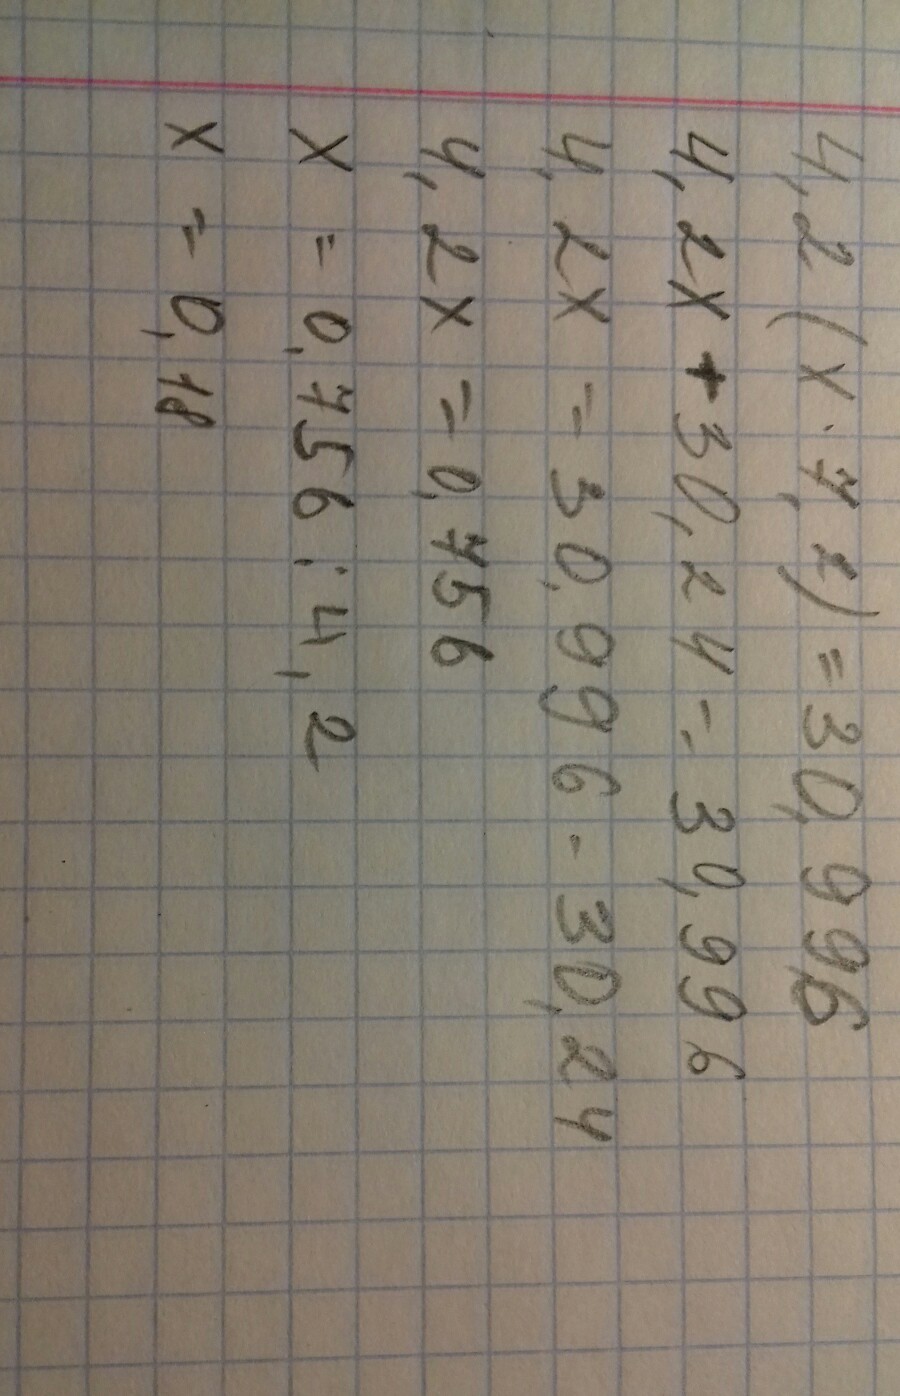 4,2(x·7,2)=30,996
4,2x+30,24=30,996
4,2x=30,996-30,24
4,2x=0,756
x=0,756:4,2
x=0,18